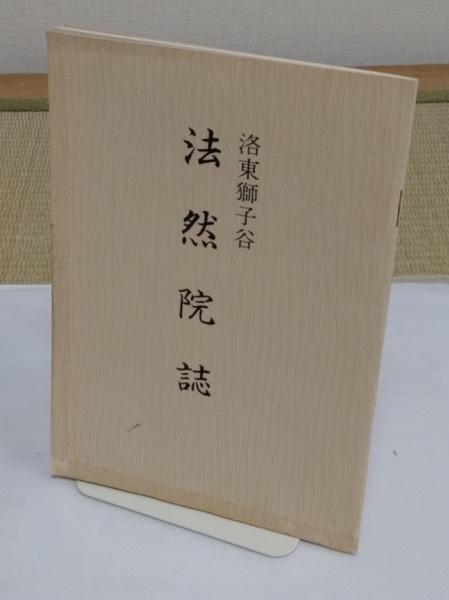 洛東獅子谷
法然院誌